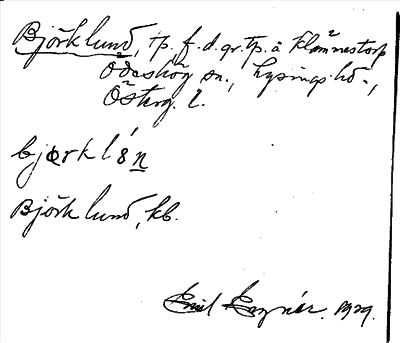 Björklund, tp, f.d. gr.tp. å Klämmestorp
Ödeshög sn., Lysings hd.,
Österg. l.
bjœrklún
Björklund, kb.
Emil 1929.